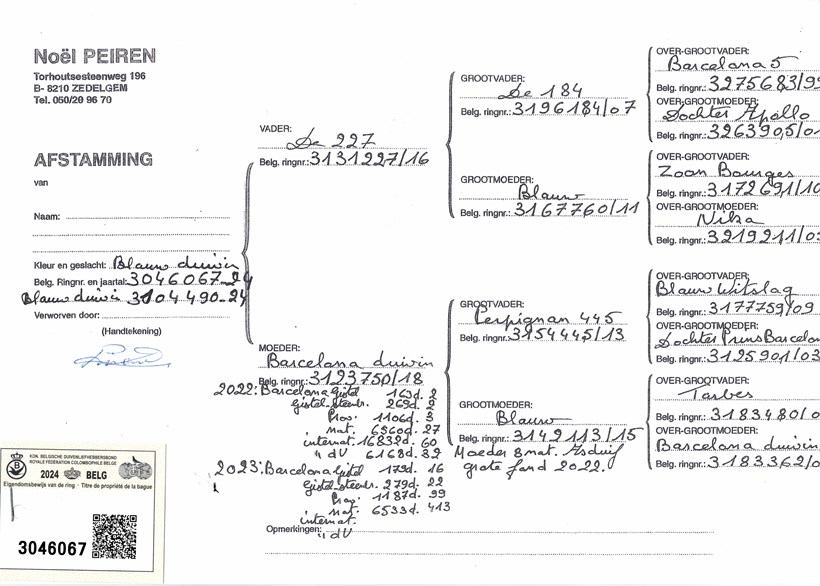 Noël PEIREN
Torhoutsesteenweg 196
B- 8210 ZEDELGEM
Tel. 050/20 96 70
AFSTAMMING
van
Naam:
Kleur en geslacht: Blauw duivin
Belg. Ringnr. en jaartal: 3046067-24
Blauw duivin 3104490-24
Verworven door:
(Handtekening)
VADER:
De 227
Belg. ringnr.: 3131227/16
MOEDER:
Barcelona duivin
Belg. ringnr.: 3123750/18
2022: Barcelona Gistel 163d. 2
Gistel-Steenbr. 269d. 2
Prov. 1106d. 3
nat. 6560d. 27
internat. 16832d. 60
" dV 6168d. 32
2023: Barcelona Gistel 179d. 16
Gistel-Steenbr. 279d. 22
Prov. 1187d. 99
nat. 6533d. 413
internat.
" dV
Opmerkingen:
GROOTVADER:
De 184
Belg. ringnr.: 3196184/07
GROOTMOEDER:
Blauw
Belg. ringnr.: 3167760/11
GROOTVADER:
Perpignan 445
Belg. ringnr.: 3154445/13
GROOTMOEDER:
Blauw
Belg. ringnr.: 3142113/15
Moeder 8 nat. Asduif
grote fond 2022.
OVER-GROOTVADER:
Barcelona 5
Belg. ringnr.: 3275683/99
OVER-GROOTMOEDER:
Dochter Apollo
Belg. ringnr.: 3263905/01
OVER-GROOTVADER:
Zoon Bourges
Belg. ringnr.: 3172691/10
OVER-GROOTMOEDER:
Nika
Belg. ringnr.: 3219211/03
OVER-GROOTVADER:
Blauw Witslag
Belg. ringnr.: 3177759/09
OVER-GROOTMOEDER:
Dochter Prins Barcelo
Belg. ringnr.: 3125901/03
OVER-GROOTVADER:
Tarbes
Belg. ringnr.: 3183480/0
OVER-GROOTMOEDER:
Barcelona duivin
Belg. ringnr.: 3183362/0
KON. BELGISCHE DUIVENLIEFHEBBERSBOND
ROYALE FÉDÉRATION COLOMBOPHILE BELGE
2024 BELG
Eigendomsbewijs van de ring - Titre de propriété de la bague
3046067